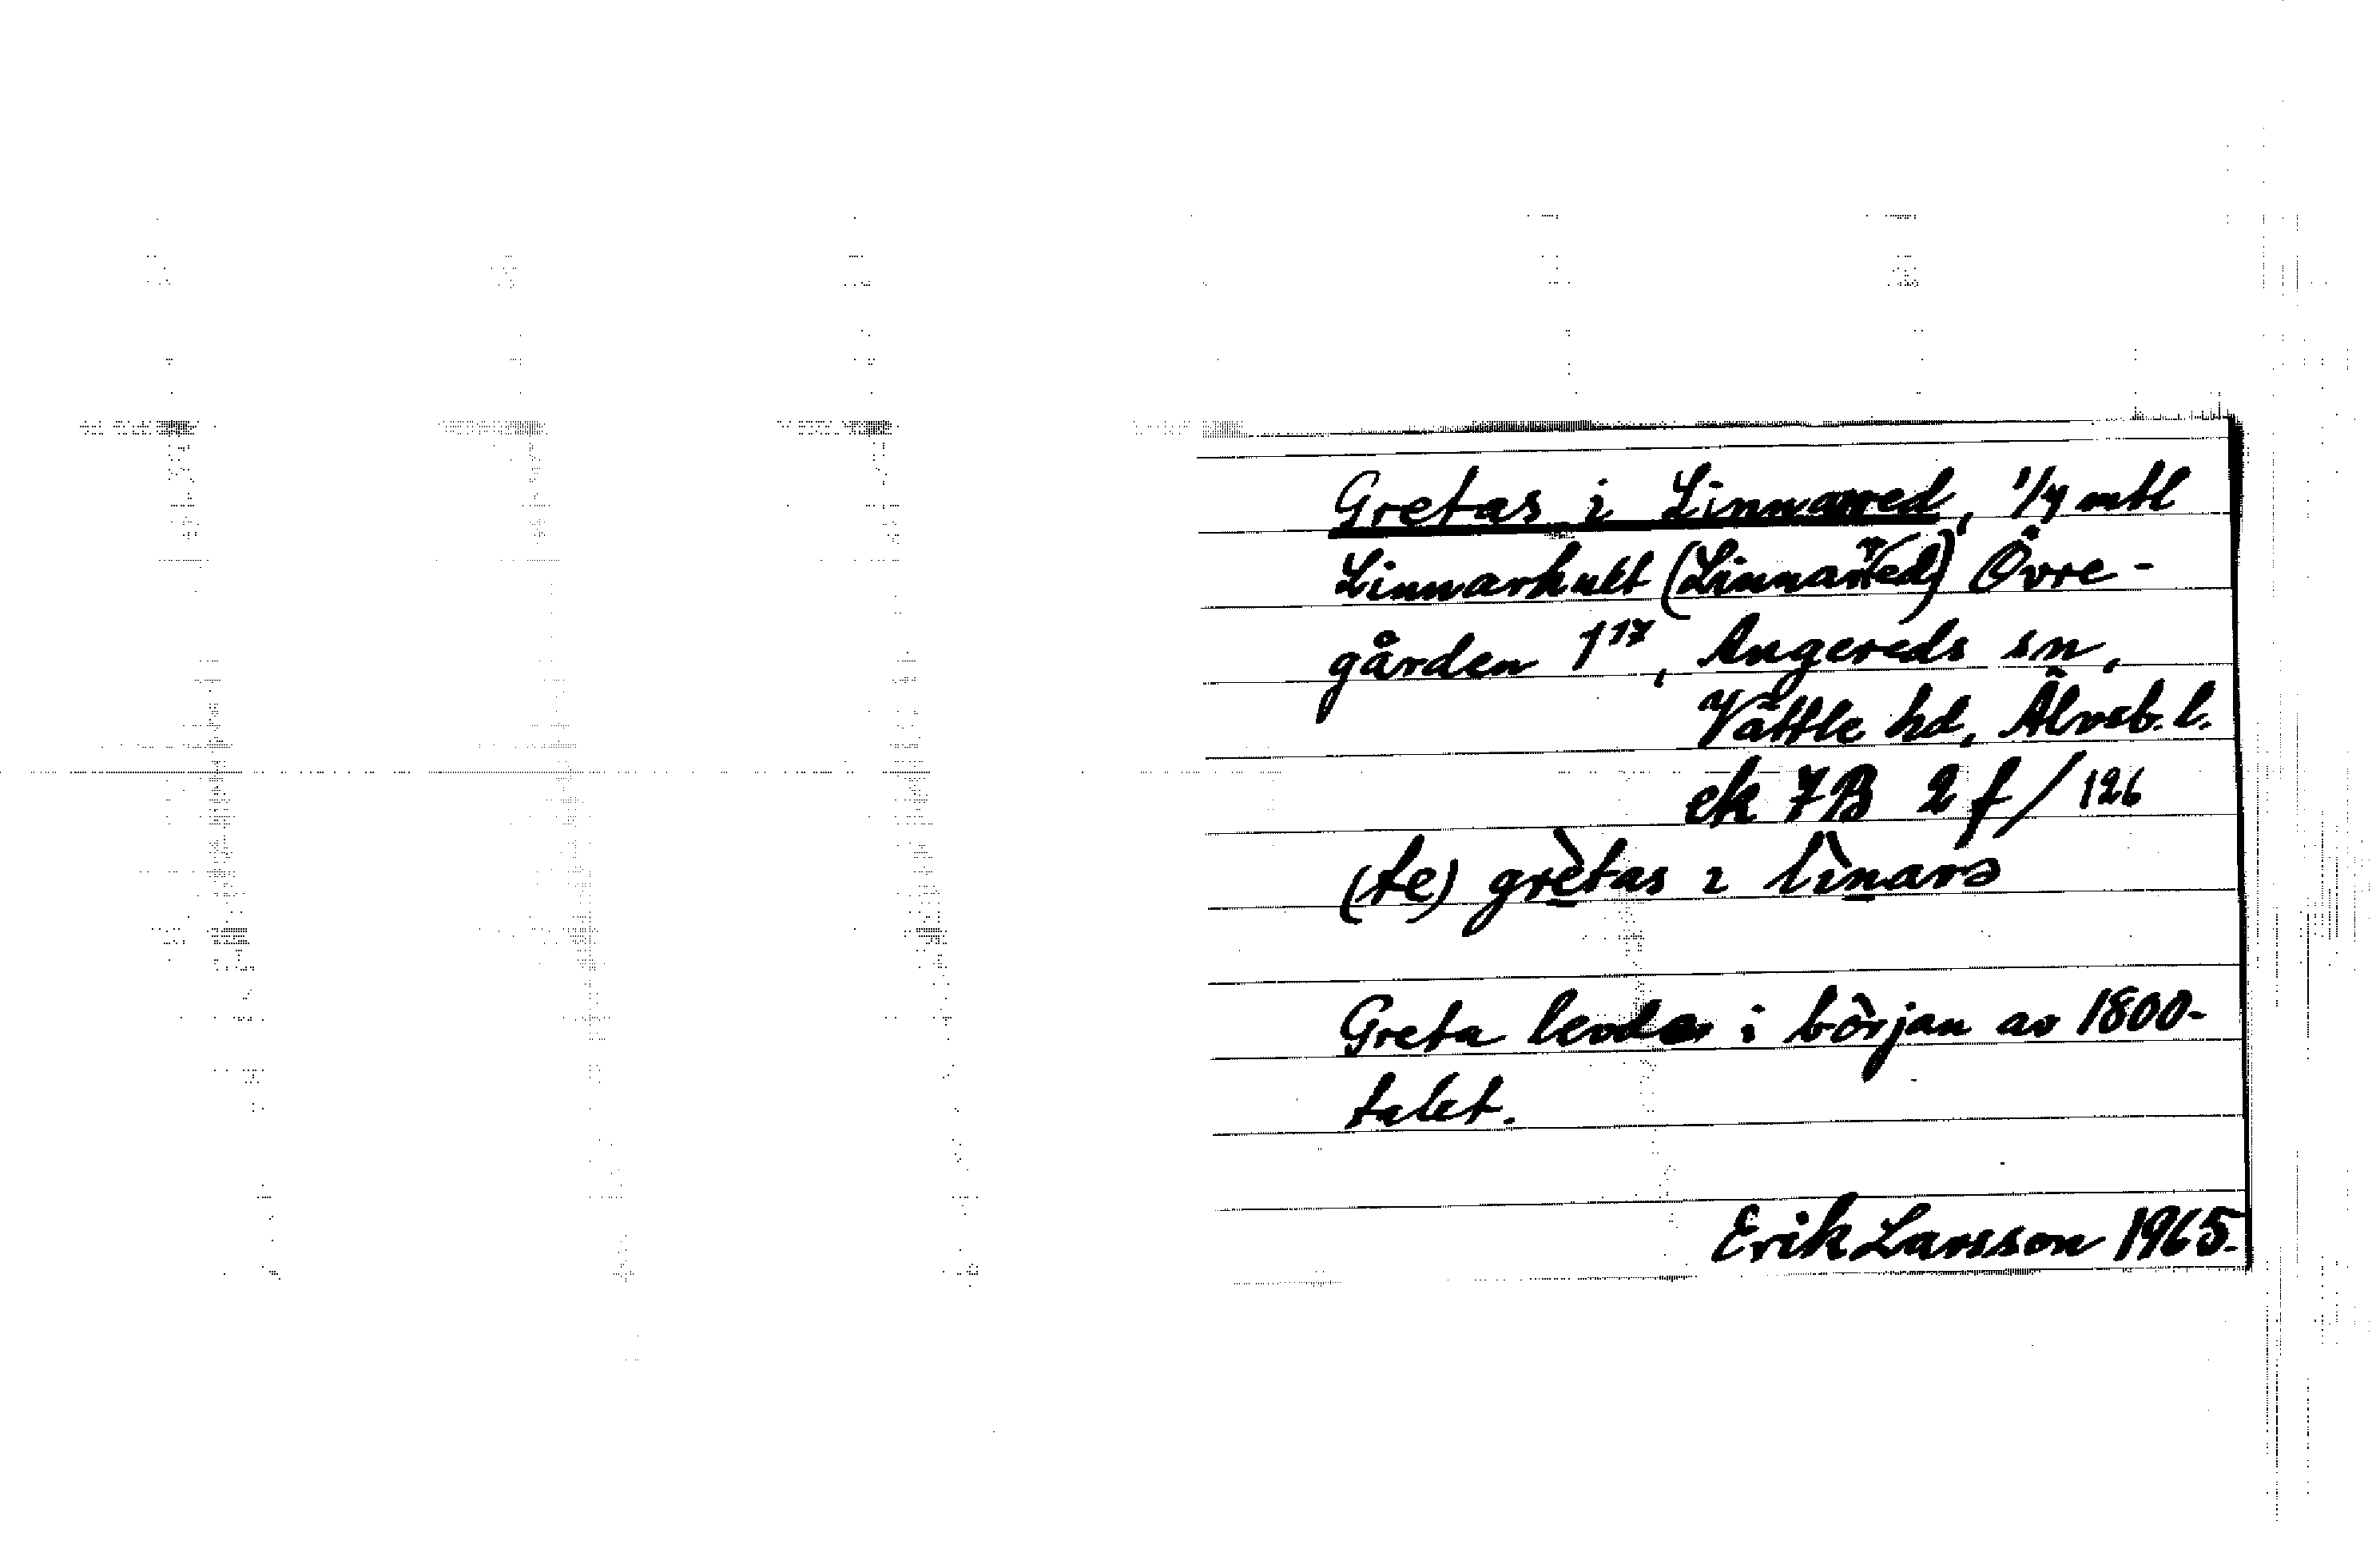 Gretas i Linnarred, 1/4 mtl
Linnarhult (Linnarred) Övre-
gården 1¹⁷, Angereds sn,
Vättle hd, Älvsb. l.
ek 7B 2 f / 126
(te) grètas ɩ lìnarə
Greta levde i början av 1800-
talet.
Erik Larsson 1965.